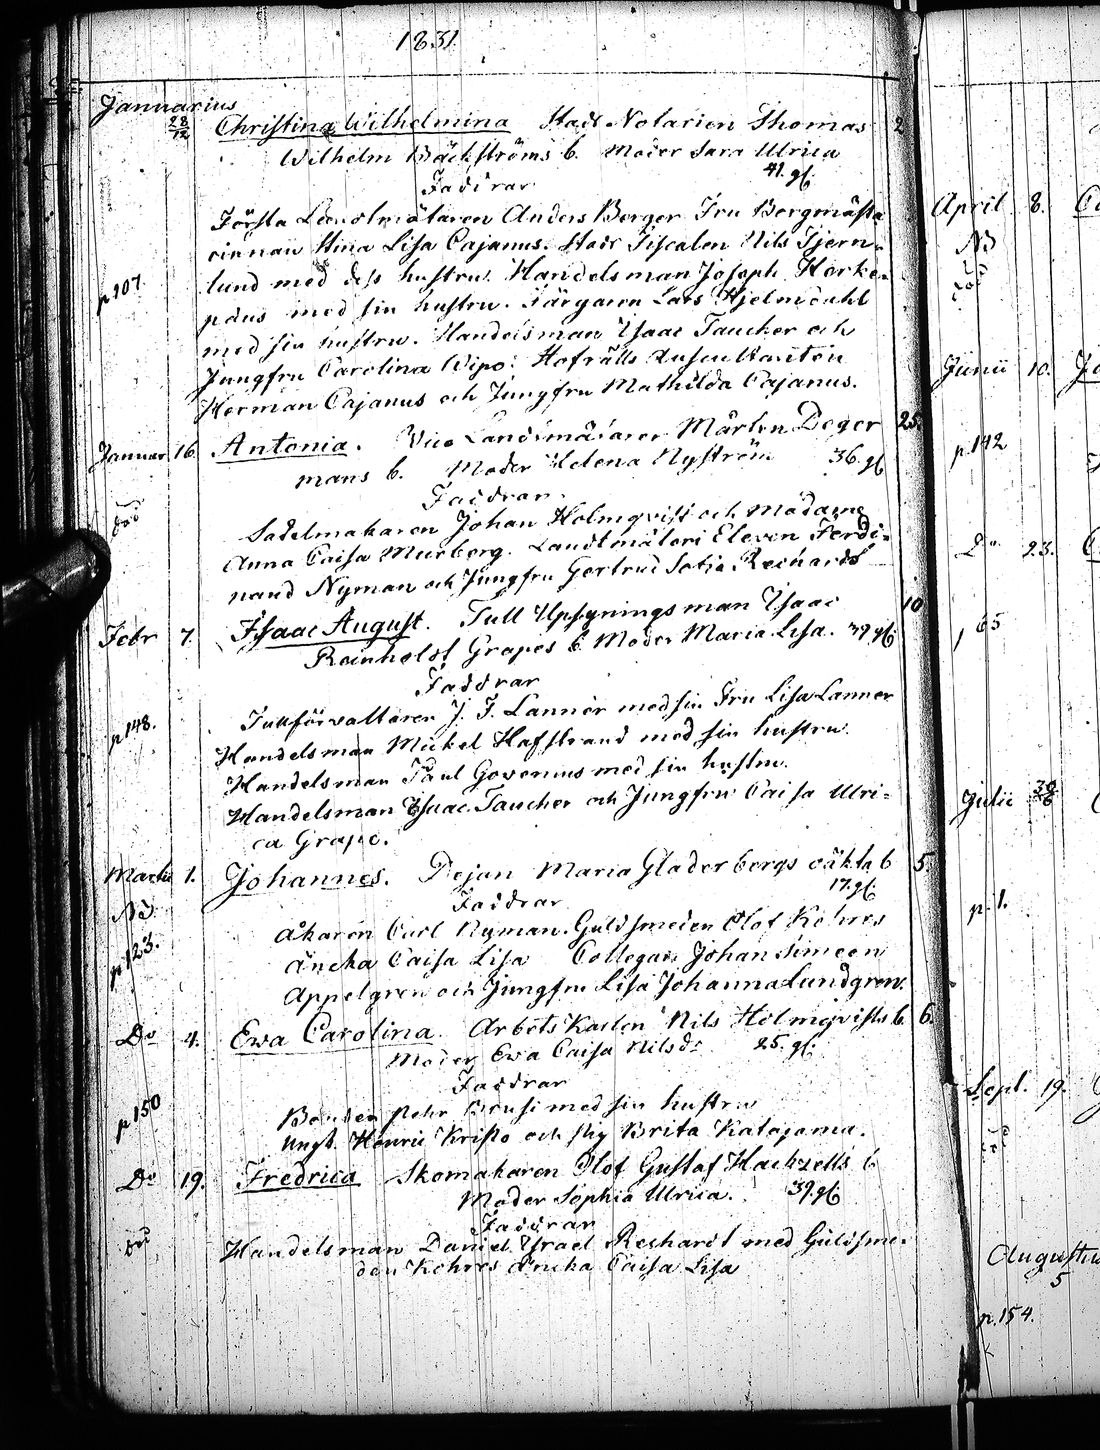 1831.
Januarius
28/12 Christina Wilhelmina Stads Notarien Thomas 2
Wilhelm Bäckströms b. Moder Sara Ulrica
41. gl.
Faddrar
Första Landtmätaren Anders Berger Fru Borgmästa
rinnan Stina Lisa Cajanus. Stads Fiscalen Nils Tjern=
lund med dess hustru. Handelsman Joseph Herke=
p.107. päus med sin hustru. Färgaren Lars Hjelmdahl
med sin hustru. Handelsman Isaac Taucher och
Jungfru Carolina Wipo. Hofrätts Auscultanten
Herman Cajanus och Jungfru Mathilda Cajanus.
Januar 16. Antonia. Vice Landtmätaren Mårten Deger 25.
mans b. Moder Helena Nyström 36. gl
Faddrar.
död Sadelmakaren Johan Holmqvist och Madame
Anna Caisa Murberg. Landtmäteri Eleven Ferdi=
nand Nyman och Jungfru Gertrud Sofia Reshardt
Febr 7. Isaac August. Tull Upsynings man Isaac 10
Reinholdt Grapes b. Moder Maria Lisa. 39 gl.
Faddrar
p 148. Tullförvaltaren J. F. Lannér med sin Fru Lisa Lanner
Handelsman Mickel Hafstrand med sin hustru.
Handelsman Paul Govenius med sin hustru.
Handelsman Isaac Taucher och Jungfru Caisa Ulri=
ca Grape.
Martii 1. Johannes. Pejan Maria Gladerbergs oäkta b 5.
17. gl.
Faddrar
NB
p 123. åkaren Carl Nyman. Guldsmeden Olof Kehres
Encka Caisa Lisa Collegan Johan Simeon
Appelgren och Jungfru Lisa Johanna Lundgren.
Do 4. Ewa Carolina. Arbets Karlen Nils Holmqvists b. 6.
Moder Ewa Caisa Nilsdr 25. gl.
Faddrar
p 150 Bonden Pehr Brusi med sin hustru
Ungk. Henric Kristo och pig Brita Katajama.
Do 19. Fredrica Skomakaren Olof Gustaf Hackzells b
Moder Sophia Ulrica. 39. gl
Faddrar
död Handelsman Daniel Israel Reshardt med Guldsme=
den Kehres Encka Caisa Lisa
April 8.
NB
död
Junii 10.
p.142
Do 23.
65
Julii 30/6
p. 1.
Sept. 19.
död
Augustu
5
p. 154.